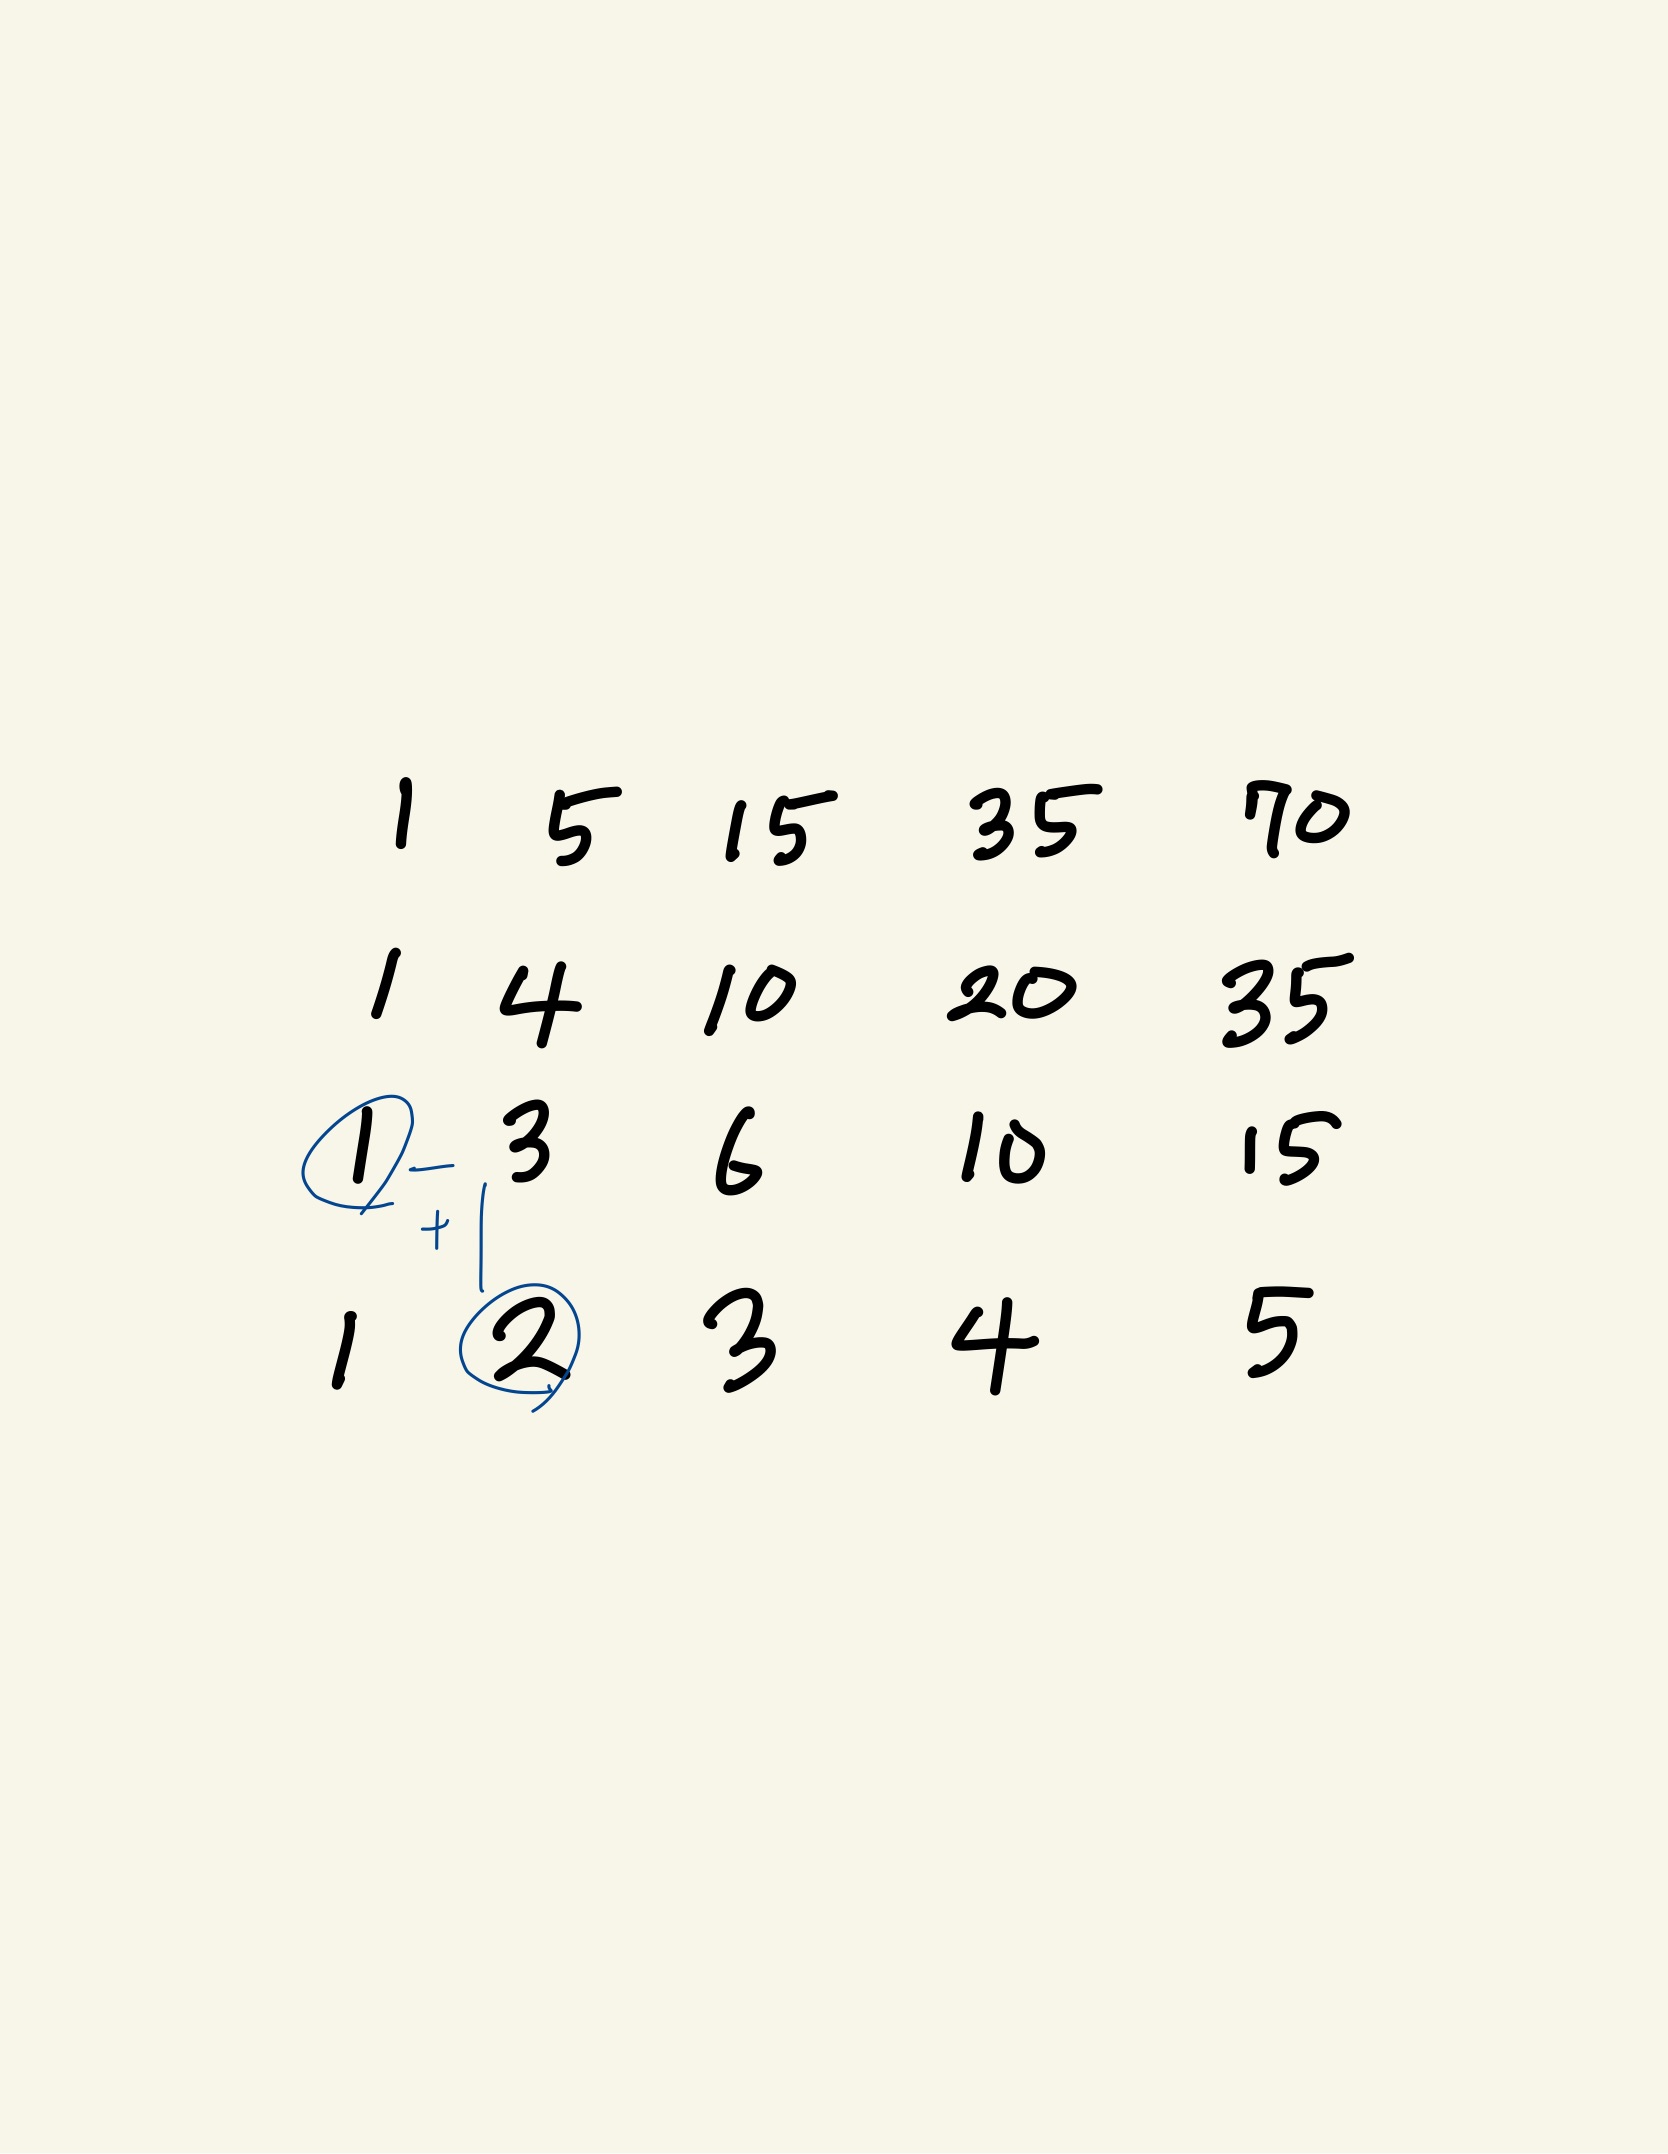 1 5 15 35 70
1 4 10 20 35
1 3 6 10 15
+
1 2 3 4 5